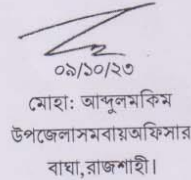 ০৯/১০/২৩
মোহা: আব্দুলমকিম
উপজেলাসমবায়অফিসার
বাঘা,রাজশাহী।